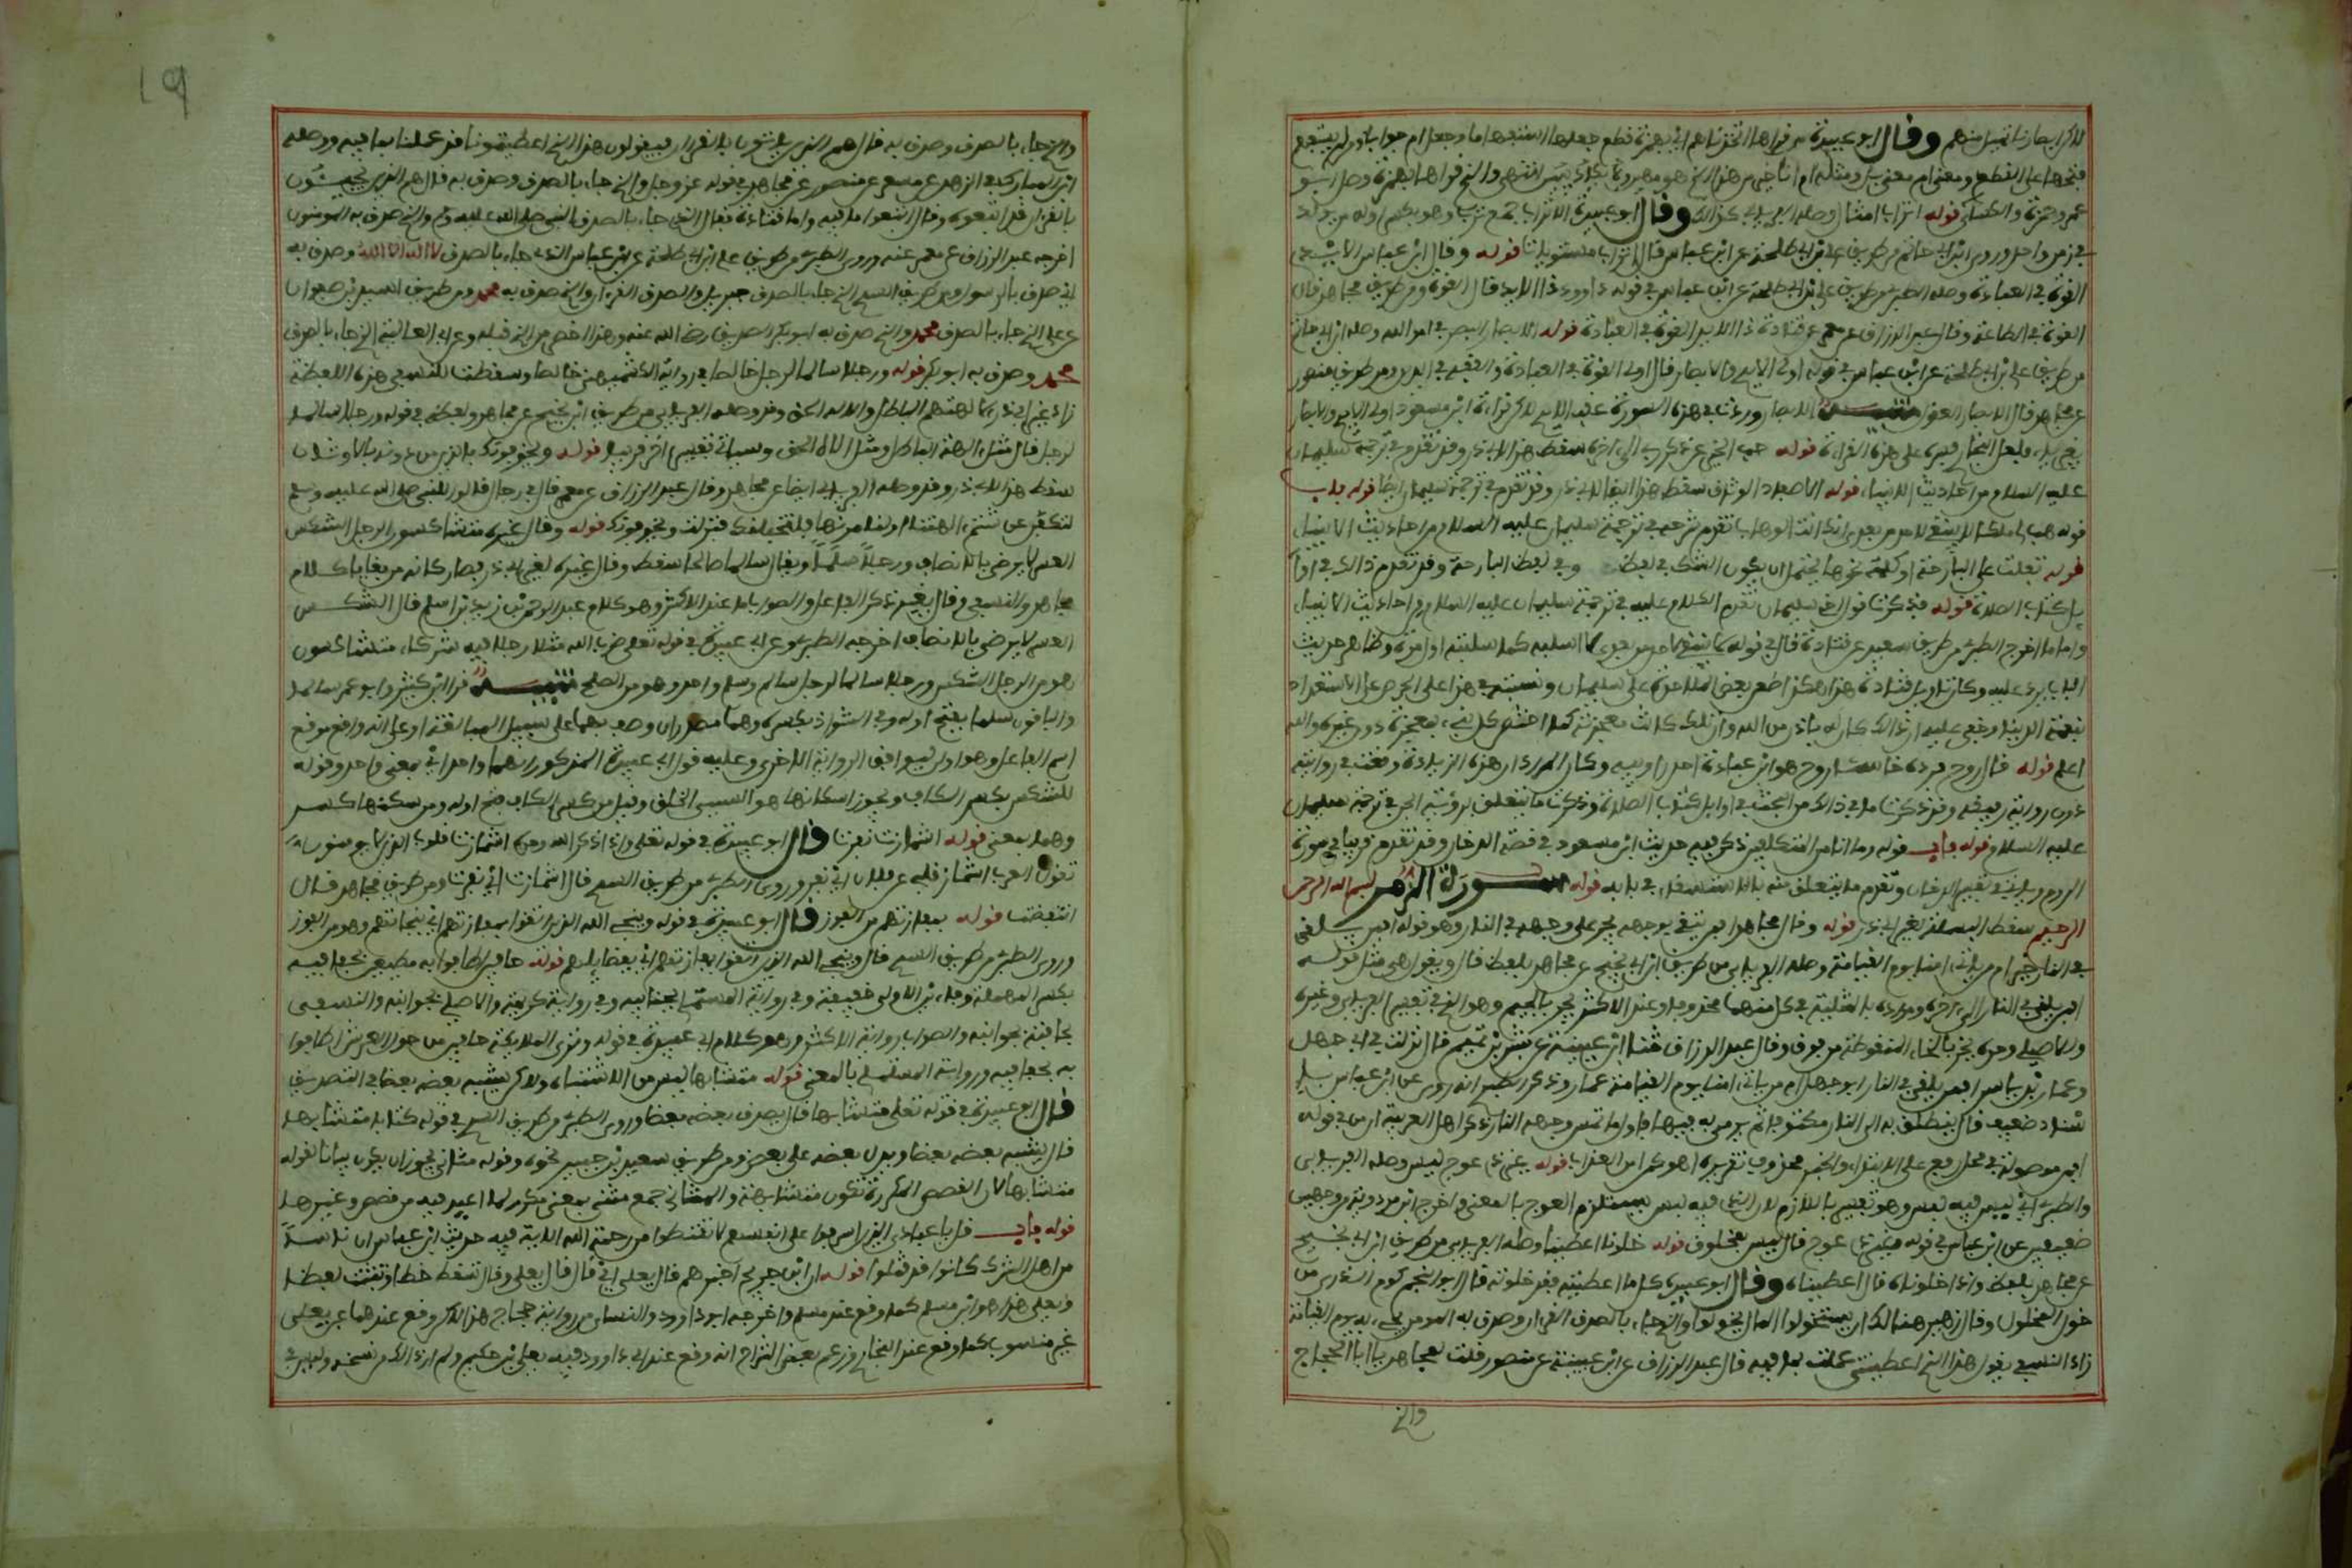 وقال ابو عبيدة من قراها اتخذناهم اي بهمزة قطع جعلها استفهاما وجعل ام جوابا ومن لم يستفهم
فتحها على القطع ومعنى ام معنى بل ومثله ام انا خير من هذا الذي هو مهين ولا يكاد يبين انتهى والذي قراها بهمزة وصل ابو
عمرو وحمزة والكسائي قوله اتراب امثال وصله الفريابي كذلك وقال ابو عبيدة الاتراب جمع ترب وهو بكسر اوله من يولد
في زمن واحد وروى ابن ابي حاتم من طريق علي بن ابي طلحة عن ابن عباس قال اتراب مستويات قوله وقال ابن عباس الايد
القوة في العبادة وصله الطبري من طريق علي بن ابي طلحة عن ابن عباس في قوله داوود ذا الايد قال القوة ومن طريق مجاهد قال
القوة في الطاعة وقال عبد الرزاق عن معمر عن قتادة ذا الايد القوة في العبادة قوله الابصار البصر في امر الله وصله ابن ابي حاتم
من طريق علي بن ابي طلحة عن ابن عباس في قوله اولي الايدي والابصار قال اولي القوة في العبادة والفقه في الدين ومن طريق منصور
عن مجاهد قال الابصار العقول تنبيه الابصار وردت في هذه السورة عقب الايدي لا في قراءة ابن مسعود اولي الايد والابصار
بغير ياء فلعل البخاري فسره على هذه القراءة قوله حب الخير عن ذكر ربي الى اخره سقط هذا لابي ذر وقد تقدم في ترجمة سليمان
عليه السلام من احاديث الانبياء قوله الاصفاد الوثاق سقط هذا ايضا لابي ذر وقد تقدم في ترجمة سليمان ايضا قوله باب
قوله هب لي ملكا لا ينبغي لاحد من بعدي انك انت الوهاب تقدم شرحه في ترجمة سليمان عليه السلام من احاديث الانبياء
قوله تفلت علي البارحة او كلمة نحوها يحتمل ان يكون الشك في لفظ وفي لفظ البارحة وقد تقدم ذلك في اوا
يل كتاب الصلاة قوله فذكرت قول اخي سليمان تقدم الكلام عليه في ترجمة سليمان عليه السلام من احاديث الانبياء
واما ما اخرج الطبري من طريق سعيد عن قتادة قال في قوله لا ينبغي لاحد من بعدي لا اسلبه كما سلبته اول مرة وظاهر حديث
الباب يرد عليه وكان تاويل قتادة هذا هكذا طعن بعض الملاحدة على سليمان ونسبته في هذا على الحرص على الاستبداد
بنعمة الدنيا وخفي عليه ان ذلك كان له باذن من الله وان تلك كانت معجزته كما اختص كل نبي بمعجزة دون غيره والله
اعلم قوله قال روح فرده خاسئا روح هو ابن عبادة احد راوييه وكان المراد ان هذه الزيادة وقعت في روايته
دون رواية رفيقه وقد ذكرت ما في ذلك من البحث في اوايل كتاب الصلاة وذكرت ما يتعلق برؤية الجن في ترجمة سليمان
عليه السلام قوله باب قوله وما انا من المتكلفين ذكر فيه حديث ابن مسعود في قصة الدخان وقد تقدم قريبا في سورة
الروم وياتي في تفسير الدخان وتقدم ما يتعلق منه بالاستسقاء في بابه قوله سورة الزمر بسم الله الرحمن
الرحيم سقط البسملة لغير ابي ذر قوله وقال مجاهد افمن يتقي بوجهه يجر على وجهه في النار وهو قوله افمن يلقى
في النار خير ام من ياتي امنا يوم القيامة وصله الفريابي من طريق ابن ابي نجيح عن مجاهد بلفظ قال ويقول هي مثل قوله
افمن يلقى في النار الى اخره ومراده بالمثلية ان في كل منهما محذوفا وعند الاكثر يجر بالجيم وهو الذي في تفسير الفريابي وغيره
وللاصيلي وحده يخر بالخاء المنقوطة من فوق وقال عبد الرزاق حدثنا ابن عيينة عن بشر بن تميم قال نزلت في ابي جهل
وعمار بن ياسر افمن يلقى في النار ابو جهل ام من ياتي امنا يوم القيامة عمار وذكر الطبري انه روى عن ابن عباس با
سناد ضعيف قال ينطلق به الى النار مكتوفا ثم يرمى به فيها فاول ما تمس وجهه النار وذكر اهل العربية ان من في قوله
افمن موصولة في محل رفع على الابتداء والخبر محذوف تقديره اهو كمن امن العذاب قوله غير ذي عوج ليس وصله الفريابي
والطبري اي ليس فيه لبس وهو تفسير باللازم لان الذي فيه لبس يستلزم العوج بالمعنى واخرج ابن مردويه من وجهين
ضعيفين عن ابن عباس في قوله غير ذي عوج قال ليس بمخلوق قوله خولنا اعطينا وصله الفريابي من طريق ابن ابي نجيح
عن مجاهد بلفظ واذا خولناه قال اعطيناه وقال ابو عبيدة كل ما اعطيته فقد خولته قال ابو النجم كوم الذرى من
خول المخول وقال زهير هنالك ان يستخولوا المال يخولوا والذي جاء بالصدق القران وصدق به المومن يجيء به يوم القيامة
زاد النسفي يقول هذا الذي اعطيتني عملت بما فيه قال عبد الرزاق عن ابن عيينة عن منصور قلت لمجاهد يا ابا الحجاج
والذي
19
والذي جاء بالصدق وصدق به قال هم الذين ياتون بالقران فيقولون هذا الذي اعطيتمونا قد عملنا بما فيه ووصله
ابن المبارك في الزهد عن مسعر عن منصور عن مجاهد في قوله عز وجل والذي جاء بالصدق وصدق به قال هم الذين يجيئون
بالقران قد اتبعوه وقال اتبعوا ما فيه واما قتادة فقال الذي جاء بالصدق النبي صلى الله عليه وسلم والذي صدق به المومنون
اخرجه عبد الرزاق عن معمر عنه وروى الطبري من طريق علي بن ابي طلحة عن ابن عباس الذي جاء بالصدق لا اله الا الله وصدق به
اي صدق بالرسول ومن طريق السدي الذي جاء بالصدق جبريل والصدق القران والذي صدق به محمد ومن طريق اسيد بن صفوان
عن علي الذي جاء بالصدق محمد والذي صدق به ابو بكر الصديق رضي الله عنه وهذا اخص من الذي قبله وعن ابي العالية الذي جاء بالصدق
محمد وصدق به ابو بكر قوله ورجلا سالما لرجل خالصا في رواية الكشميهني خالصا وسقطت للنسفي هذه اللفظة
زاد غير ابي ذر مثل لهتهم الباطل والاله الحق وقد وصله الفريابي من طريق ابن ابي نجيح عن مجاهد ولفظه في قوله ورجلا سالما
لرجل قال مثل الهة الباطل ومثل الاه الحق وسياتي تفسير اخر قريبا قوله ويخوفونك بالذين من دونه بالاوثان
سقط هذا لابي ذر وقد وصله الفريابي ايضا عن مجاهد وقال عبد الرزاق عن معمر قال لي رجل قالوا للنبي صلى الله عليه وسلم
لتكفن عن شتم الهتنا او لنامرنها فلتخبلنك فنزلت ويخوفونك قوله وقال غيره متشاكسون الرجل الشكس
العسر لا يرضى بالانصاف ورجلا سلما ويقال سالما صالحا سقط وقال غيره لغير ابي ذر فصار كانه من بقايا كلام
مجاهد وللنسفي وقال بغير ذكر الفاعل والصواب ما عند الاكثر وهو كلام عبد الرحمن بن زيد بن اسلم قال الشكس
العسر لا يرضى بالانصاف اخرجه الطبري وعن ابي عبيدة في قوله تعلى ضرب الله مثلا رجلا فيه شركاء متشاكسون
هو من الرجل الشكس ورجلا سالما الرجل سالم وسلم واحد وهو من الصلح تنبيه قرا ابن كثير وابو عمرو سالما
والباقون سلما بفتح اوله وفي الشواذ بكسره وهما مصدران وصف بهما على سبيل المبالغة او على انه واقع موقع
اسم الفاعل وهو اولى ليوافق الرواية الاخرى وعليه قول ابي عبيدة المذكور انهما واحد اي بمعنى واحد وقوله
الشكس بكسر الكاف ويجوز اسكانها هو السيئ الخلق وقيل من كسر الكاف فتح اوله ومن سكنها كسر
وهما بمعنى قوله اشمازت نفرت قال ابو عبيدة في قوله تعلى واذا ذكر الله وحده اشمازت قلوب الذين لا يومنون
تقول العرب اشماز قلبي عن فلان اي نفر وروى الطبري من طريق السدي قال اشمازت اي نفرت ومن طريق مجاهد قال
انقبضت قوله بمفازتهم من الفوز قال ابو عبيدة في قوله وينجي الله الذين اتقوا بمفازتهم اي بنجاتهم وهو من الفوز
وروى الطبري من طريق السدي قال وينجي الله الذين اتقوا بمفازتهم اي بفضايلهم قوله حافين اطافوا به مطيفين بحفافيه
بكسر المهملة وفاءين الاولى خفيفة وفي رواية المستملي بجانبيه وفي رواية كريمة والاصيلي بجوانبه وللنسفي
بحافته بجوانبه والصواب رواية الاكثر وهو كلام ابي عبيدة في قوله وترى الملائكة حافين من حول العرش اطافوا
به بحفافيه ورواية المستملي بالمعنى قوله متشابها ليس من الاشتباه ولكن يشبه بعضه بعضا في التصديق
قال ابو عبيدة في قوله تعلى متشابها قال يصدق بعضه بعضا وروى الطبري من طريق السدي في قوله كتابا متشابها
قال يشبه بعضه بعضا ويدل بعضه على بعض ومن طريق سعيد بن جبير نحوه وقوله مثاني يجوز ان يكون بيانا لقوله
متشابها لان القصص المكررة تكون متشابهة والمثاني جمع مثنى بمعنى مكرر لما اعيد فيه من قصص وغيرها
قوله باب قل يا عبادي الذين اسرفوا على انفسهم لا تقنطوا من رحمة الله الاية فيه حديث ابن عباس ان ناسا
من اهل الشرك كانوا قد قتلوا قوله ان ابن جريج اخبرهم قال يعلى اي قال قال يعلى وقال تسقط خطا وتثبت لفظا
ويعلى هذا هو ابن مسلم كما وقع عند مسلم واخرجه ابو داود والنسائي من رواية حجاج هذا لكن وقع عندهما عن يعلى
غير منسوب كما وقع عند البخاري وزعم بعض الشراح انه وقع عند ابي داوود فيه يعلى بن حكيم ولم ار ذلك في نسخه وليس في